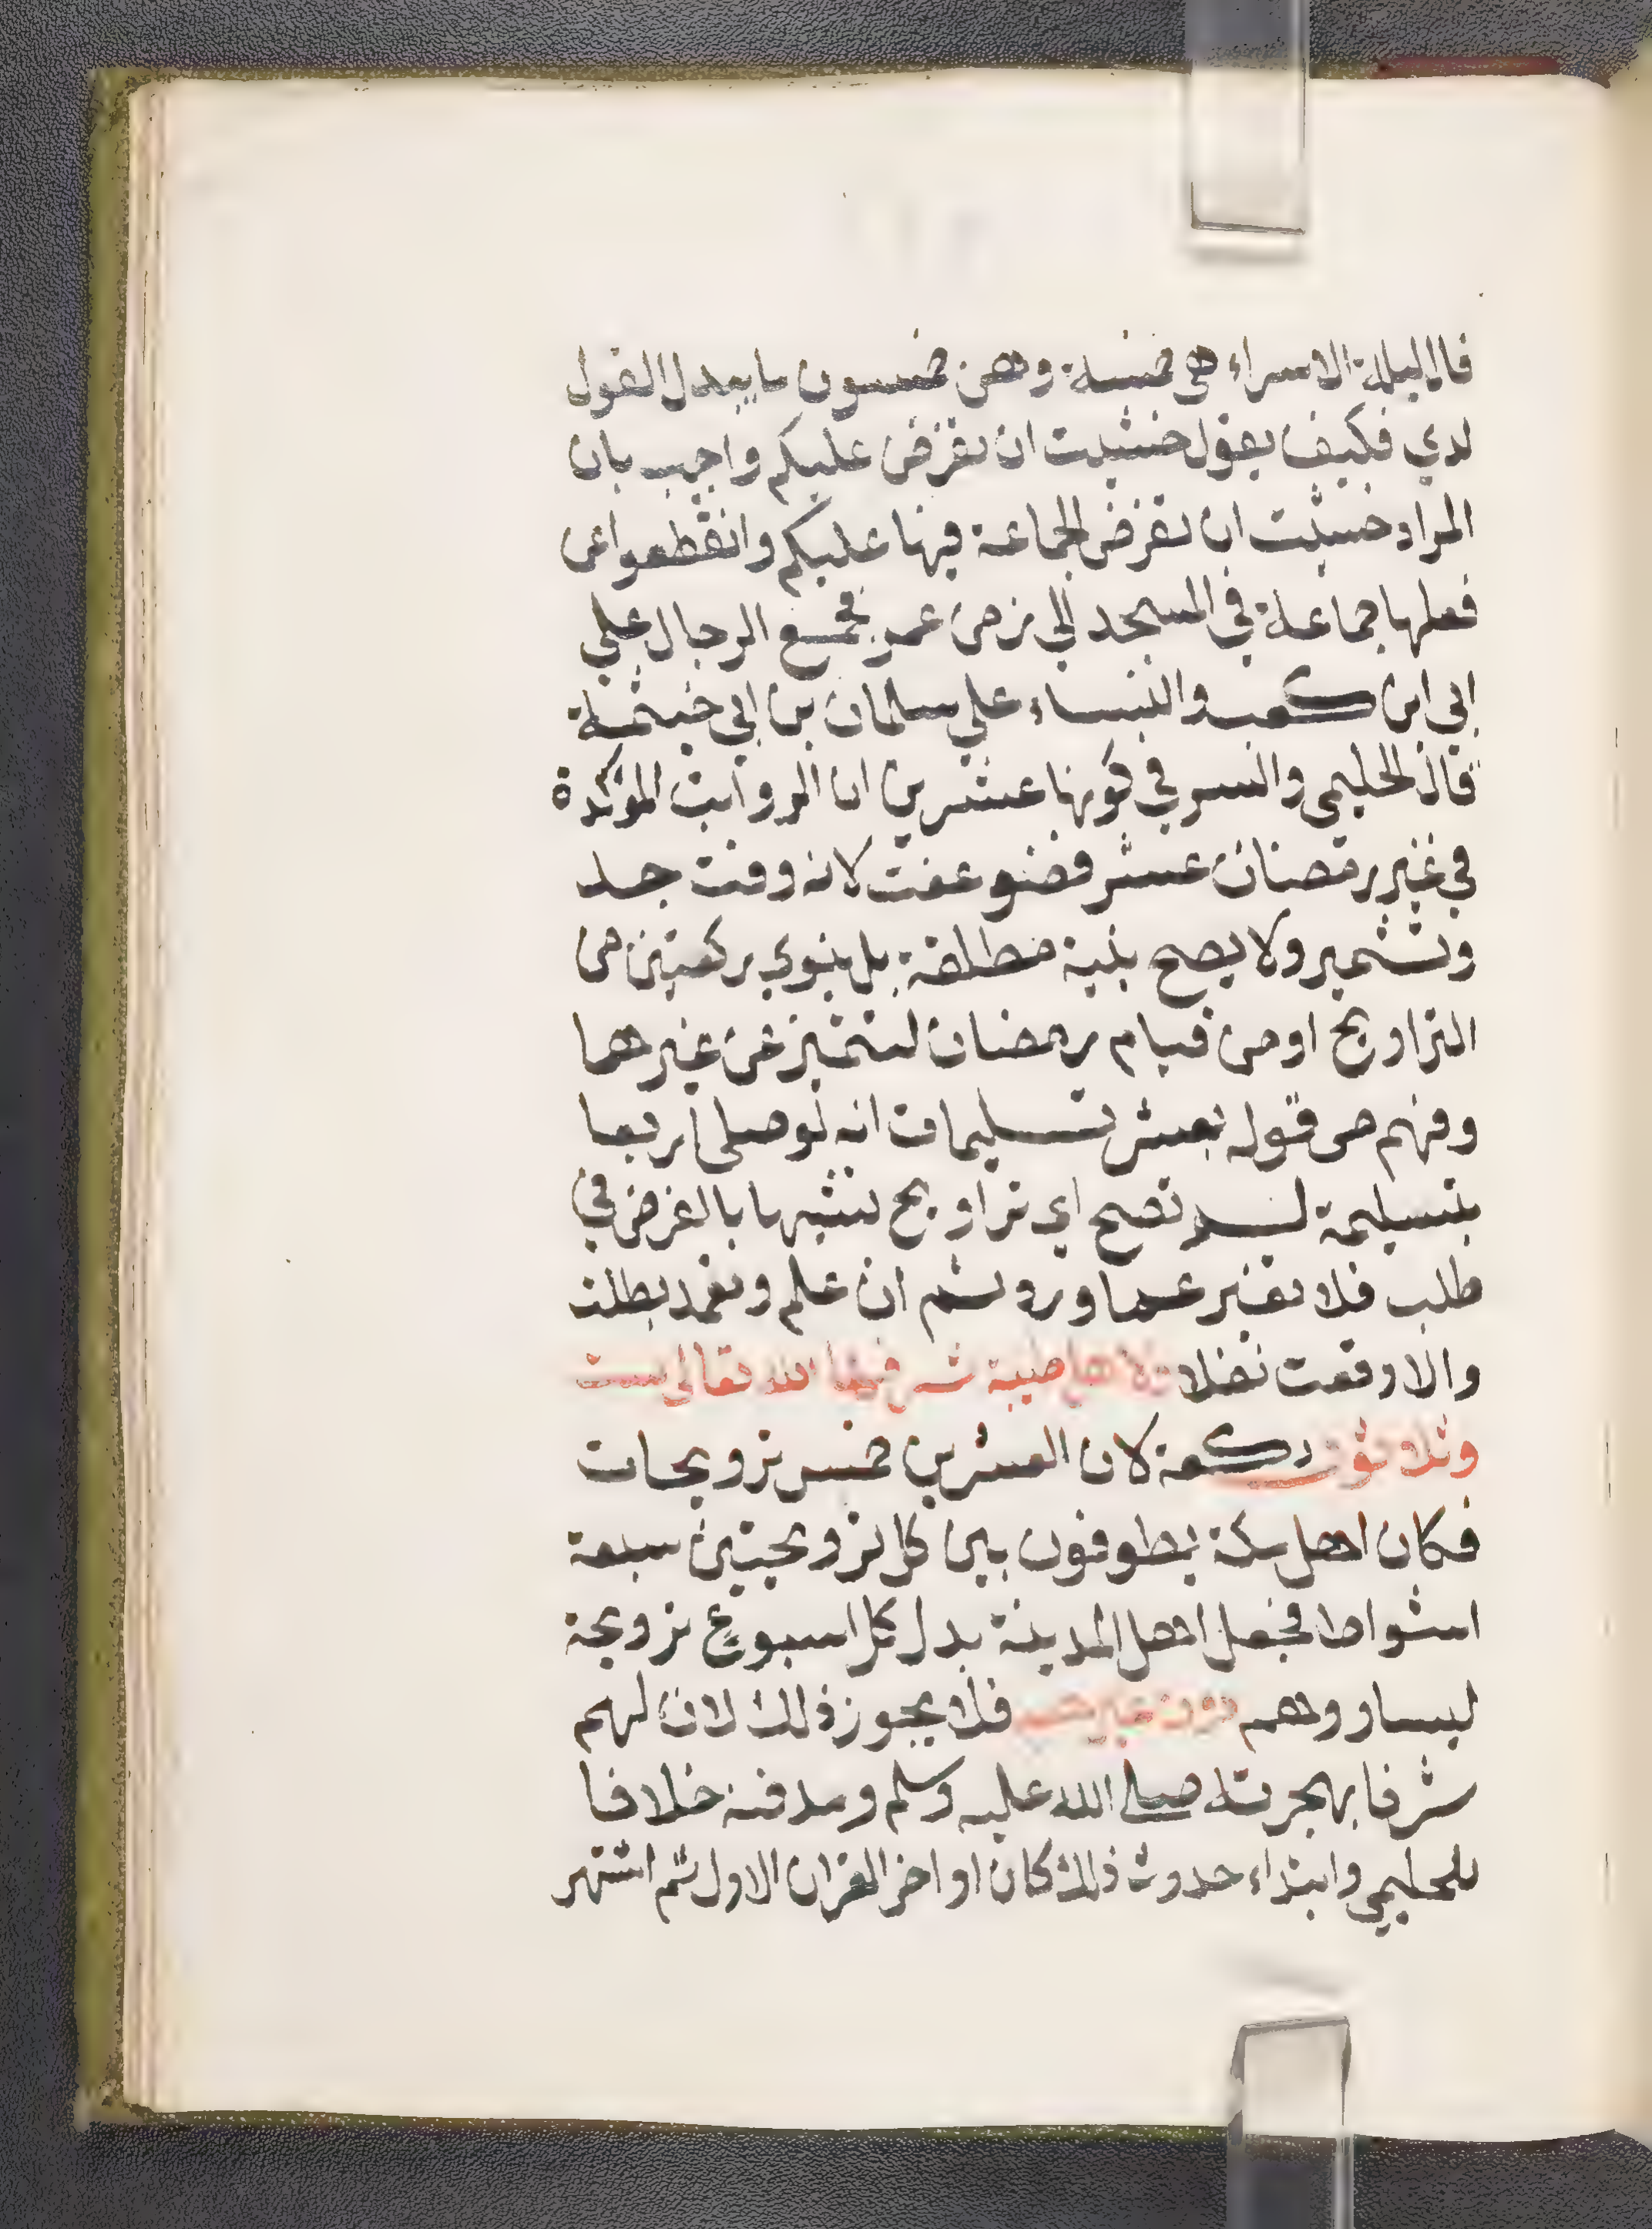 قال ليلة الاسراء هي خمسة وهن خمسون ما يبدل القول
لدي فكيف يقول خشيت ان تفرض عليكم واجيب بان
المراد خشيت ان تفرض الجماعة فيها عليكم وانقطعوا عن
فعلها جماعة في المسجد الي زمن عمر فجمع الرجال علي
ابي ابن كعب والنساء علي سلمان بن ابي خيثمة
قال الحليمي والسر في كونها عشرين ان الرواتب المؤكدة
في غير رمضان عشر فضوعفت لانه وقت جد
وتشمير ولا يصح بنية مطلقة بل ينوي ركعتين من
التراويح او من قيام رمضان لتتميز عن غيرها
وفهم من قوله بعشر تسليمات انه لو صلى اربعا
بتسليمة لم تصح اي تراويح لشبهها بالفرض في
طلب فلا تغير عما ورد ثم ان علم وتعمد بطلت
والا وقعت نفلا ولاهل طيبة شرفها الله تعالى ست
وثلاثون ركعة لان العشرين خمس ترويحات
فكان اهل مكة يطوفون بين كل ترويحتين سبعة
اشواط فجعل اهل المدينة بدل كل اسبوع ترويحة
ليساووهم دون غيرهم فلا يجوز ذلك لان لهم
شرفا بهجرته صلى الله عليه وسلم ومدفنه خلافا
للحليمي وابتداء حدوث ذلك كان اواخر القران الاول ثم اشتهر